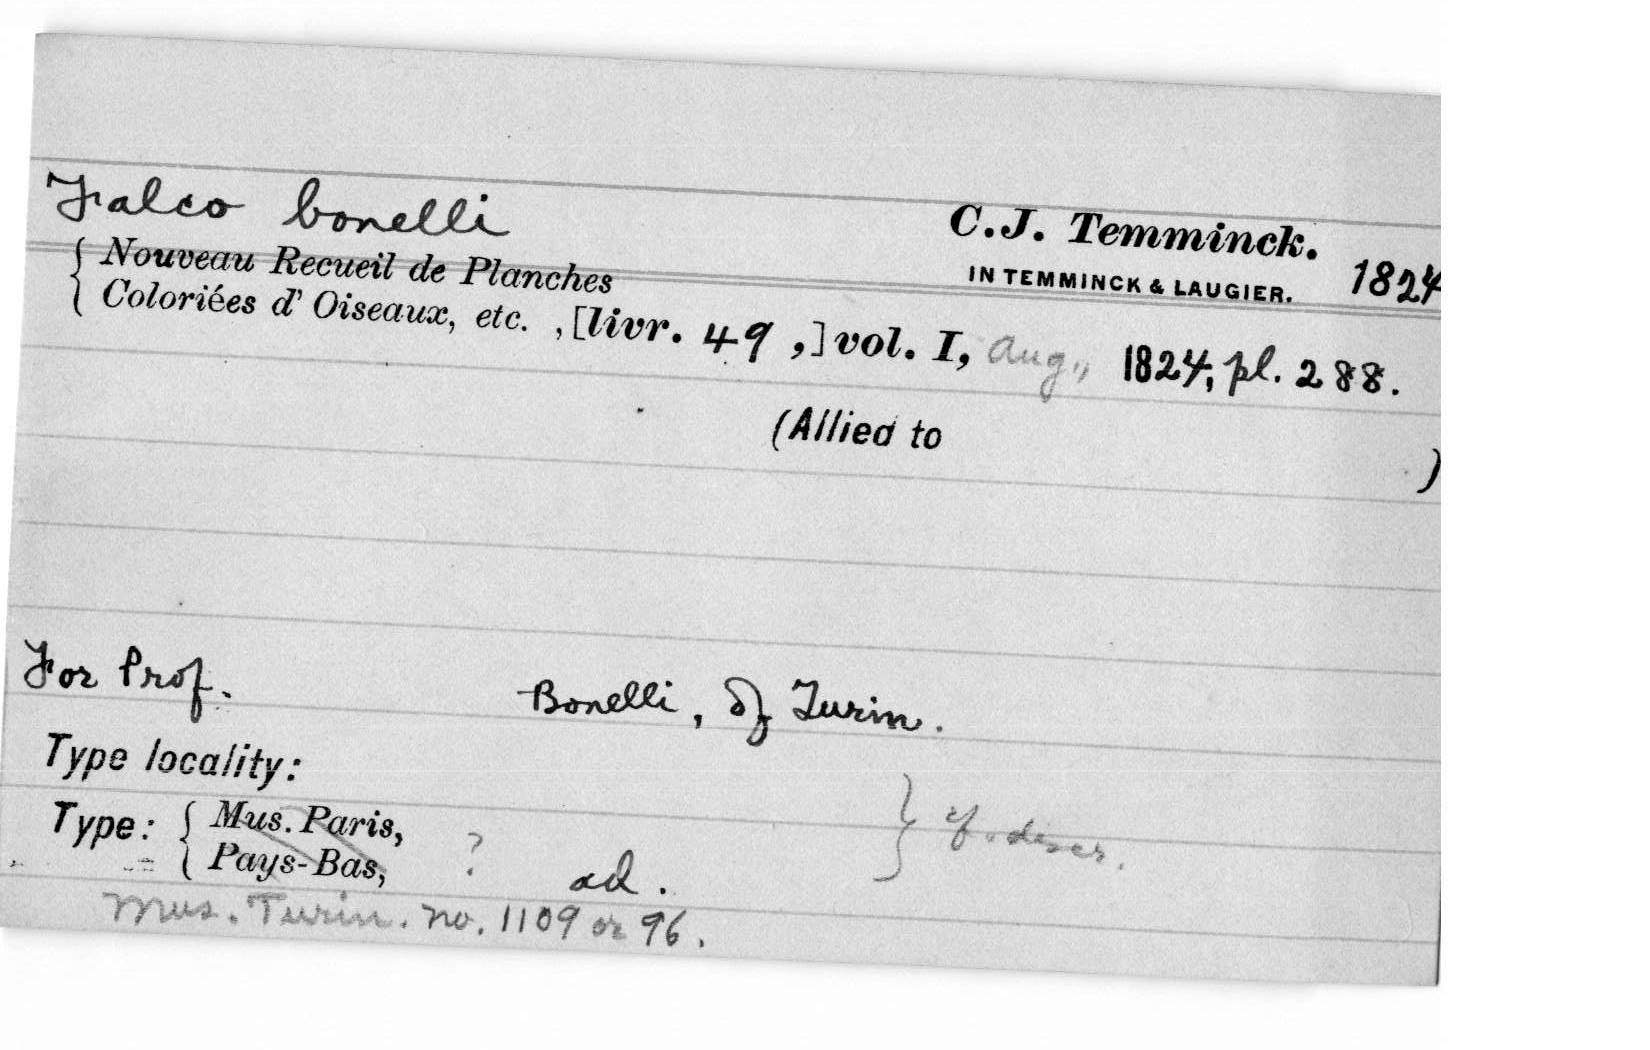 Falco bonelli
C.J. Temminck.
IN TEMMINCK & LAUGIER. 1824
{ Nouveau Recueil de Planches
Coloriées d' Oiseaux, etc. , [livr. 49 ,] vol. I, Aug., 1824, pl. 288.
(Allied to )
For Prof. Bonelli, of Turin.
Type locality:
Type: { Mus. Paris,
Pays-Bas, ? ad. } cf. descr.
Mus. Turin. no. 1109 or 96.